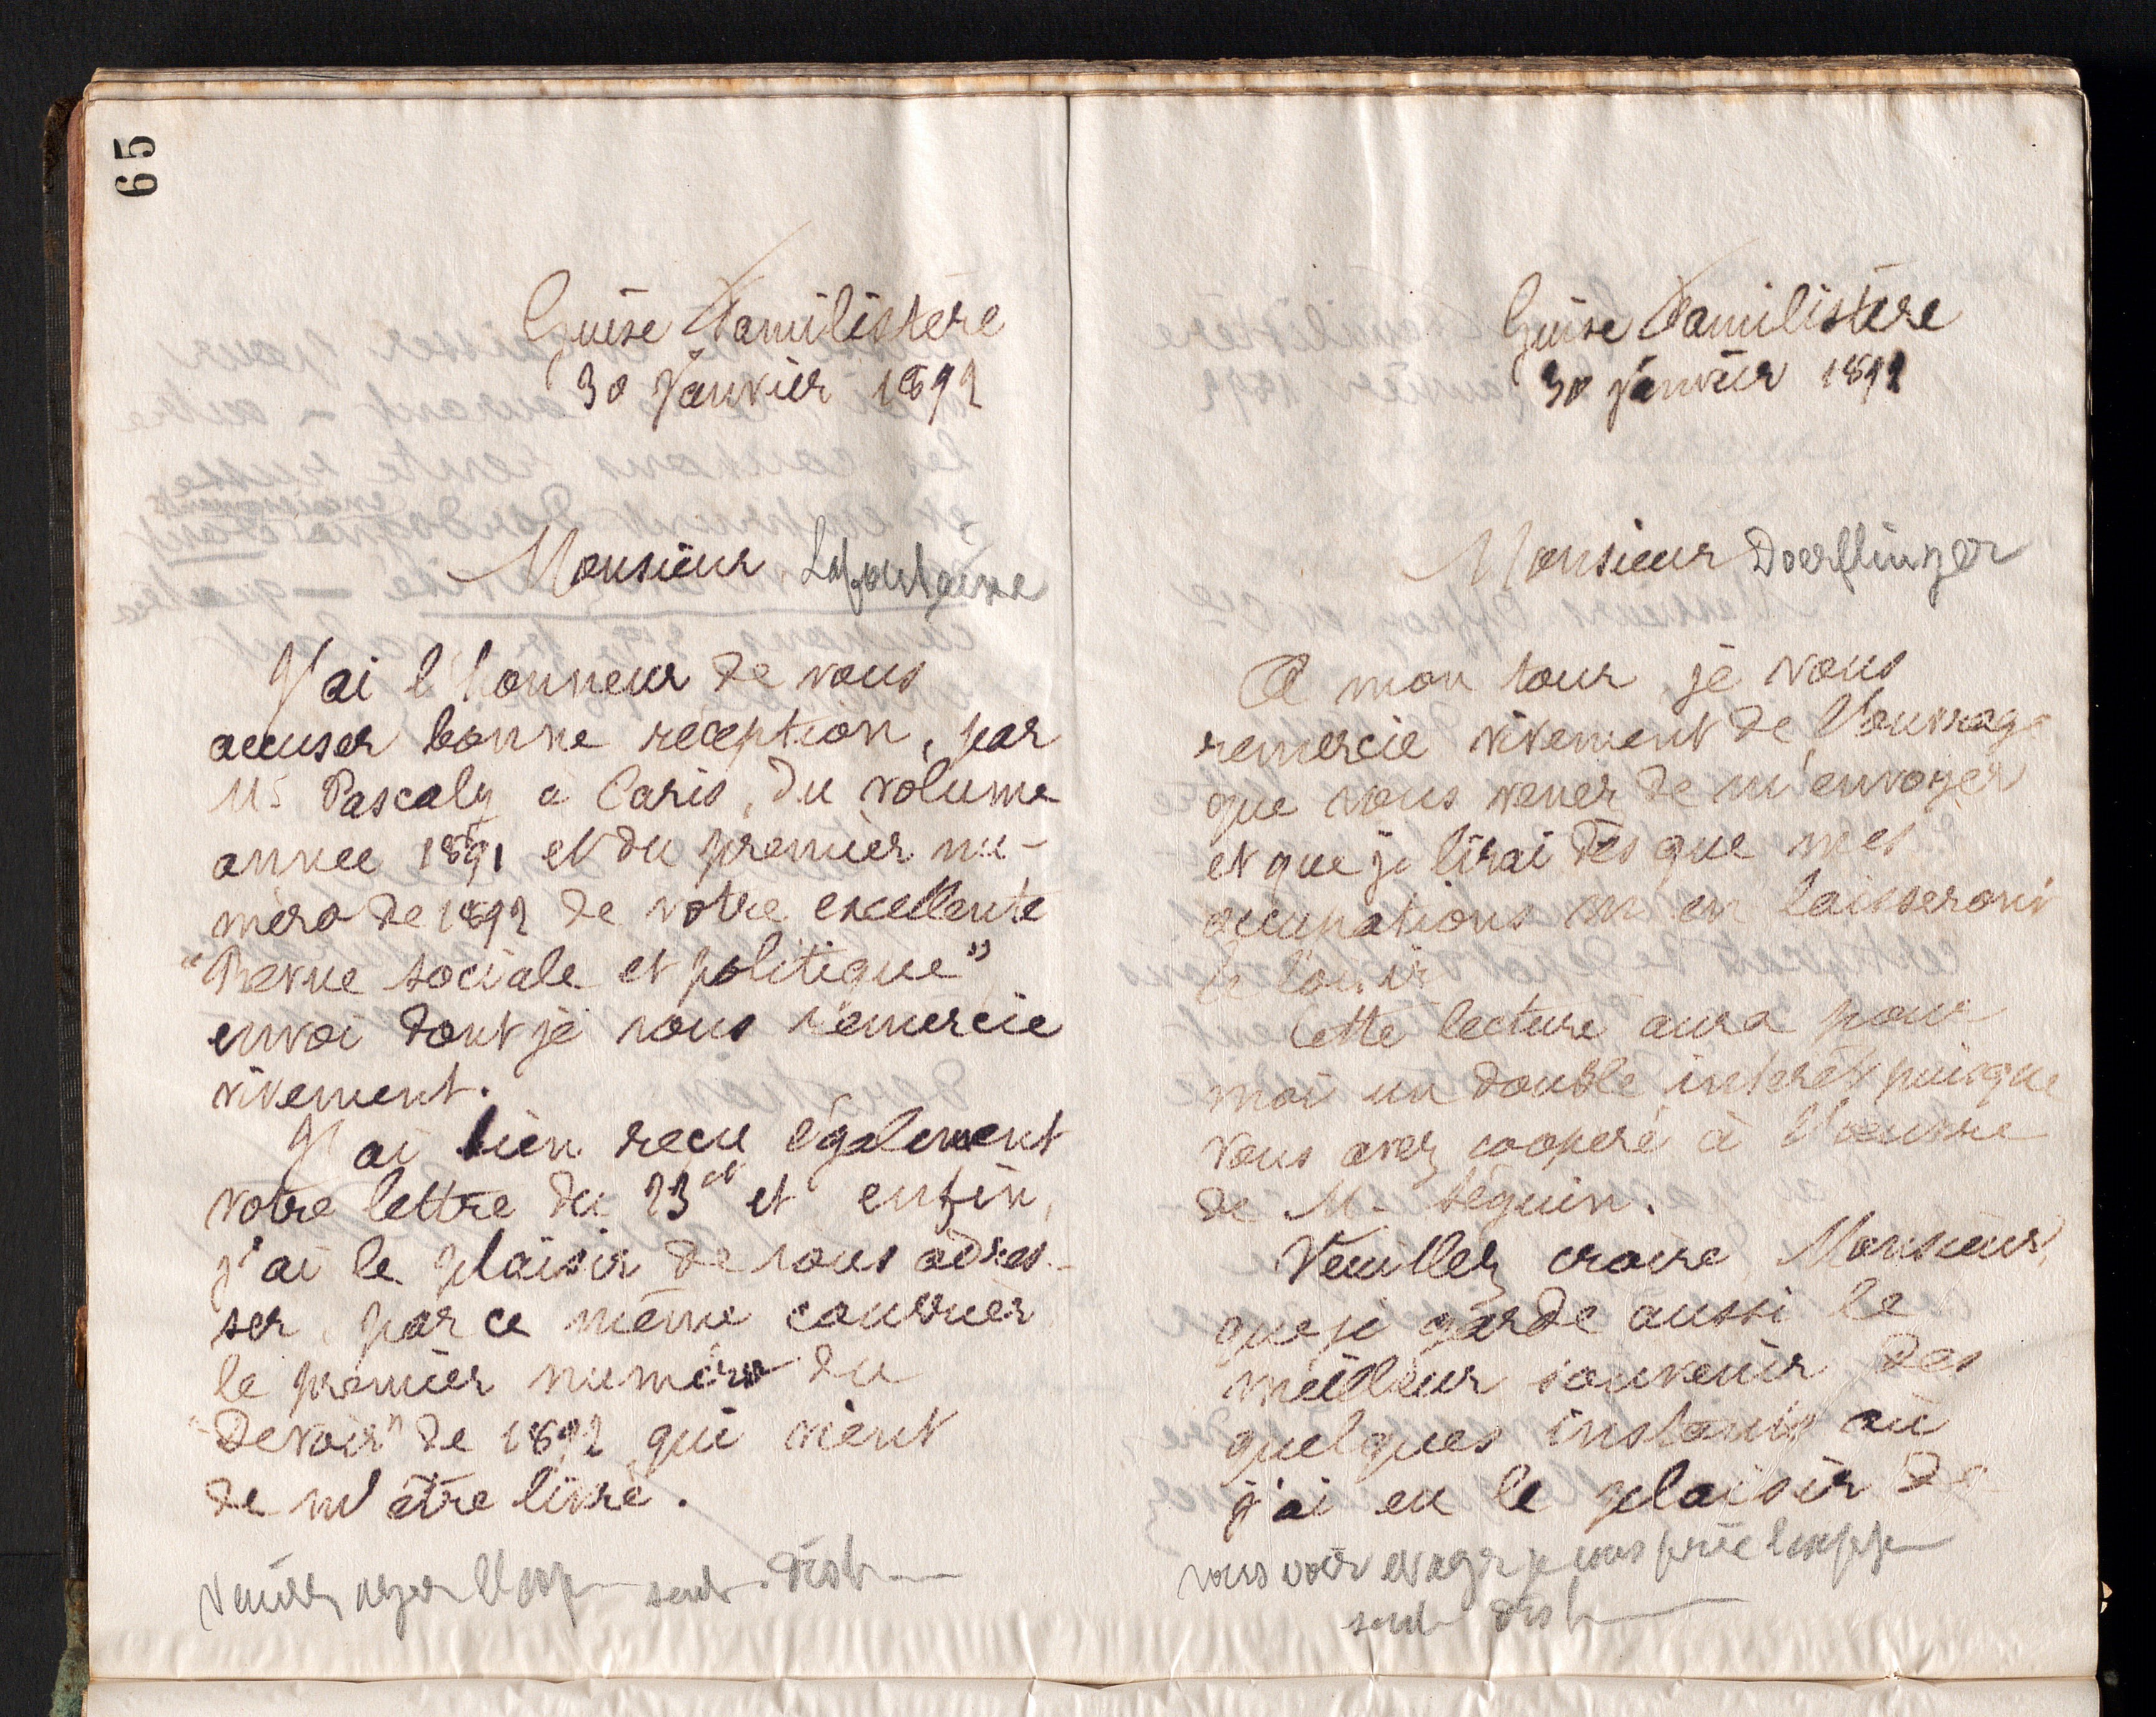 65
Guise Familistère
30 Janvier 1892
Monsieur Lafontaine
J'ai l'honneur de vous
accuser bonne réception, par
Mr Pascaly à Paris, du volume
année 1891 et du premier nu-
méro de 1892 de votre excellente
"Revue sociale et politique",
envoi dont je vous remercie
vivement.
J'ai bien reçu également
votre lettre du 23 ct et enfin,
j'ai le plaisir de vous adres-
ser, par ce même courrier
le premier numéro du
"Devoir" de 1892 qui vient
de m'être livré.
Guise Familistère
30 janvier 1892
Monsieur Doerflinger
A mon tour, je vous
remercie vivement de l'ouvrage
que vous venez de m'envoyer
et que je lirai dès que mes
occupations m'en laisseront
le loisir
Cette lecture aura pour
moi un double intérêt puisque
vous avez coopéré à l'oeuvre
de M. Séguin.
Veuillez croire, Monsieur,
que je garde aussi le
meilleur souvenir des
quelques instants où
j'ai eu le plaisir de
vous voir et agr je vous prie l'exp
sent dist